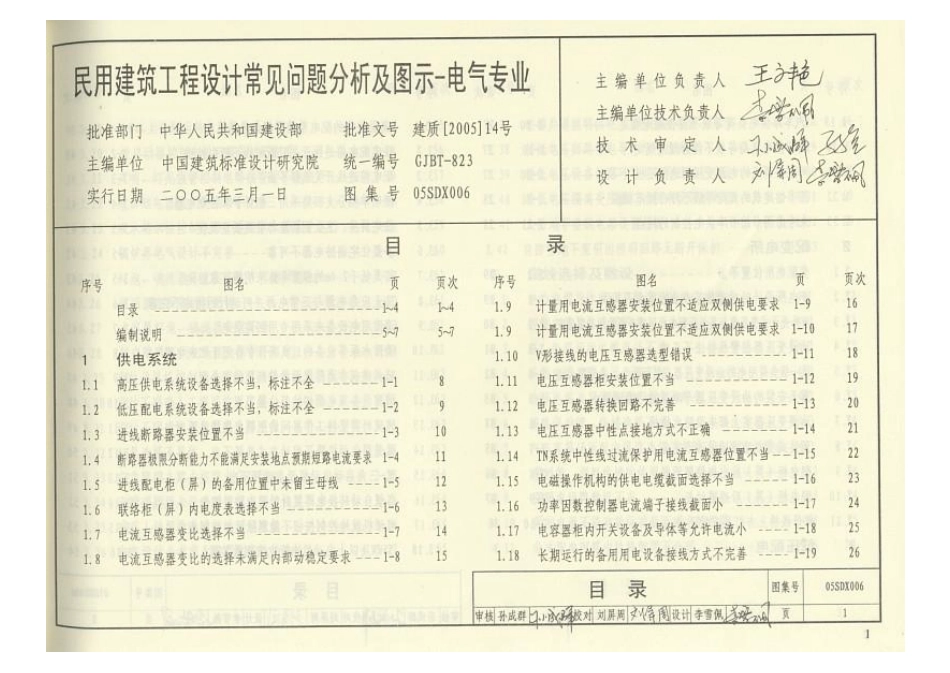 民用建筑工程设计常见问题分析及图示-电气专业
批准部门 中华人民共和国建设部 批准文号 建质[2005]14号
主编单位 中国建筑标准设计研究院 统一编号 GJBT-823
实行日期 二〇〇五年三月一日 图集号 05SDX006
主编单位负责人
主编单位技术负责人
技术审定人
设计负责人
目 录
序号 图名 页 页次
目录 1-4 1-4
编制说明 5-7 5-7
1 供电系统
1.1 高压供电系统设备选择不当、标注不全 1-1 8
1.2 低压配电系统设备选择不当、标注不全 1-2 9
1.3 进线断路器安装位置不当 1-3 10
1.4 断路器极限分断能力不能满足安装地点预期短路电流要求 1-4 11
1.5 进线配电柜(屏)的备用位置中未留主母线 1-5 12
1.6 联络柜(屏)内电度表选择不当 1-6 13
1.7 电流互感器变比选择不当 1-7 14
1.8 电流互感器变比的选择未满足内部动稳定要求 1-8 15
序号 图名 页 页次
1.9 计量用电流互感器安装位置不适应双侧供电要求 1-9 16
1.9 计量用电流互感器安装位置不适应双侧供电要求 1-10 17
1.10 V形接线的电压互感器选型错误 1-11 18
1.11 电压互感器柜安装位置不当 1-12 19
1.12 电压互感器转换回路不完善 1-13 20
1.13 电压互感器中性点接地方式不正确 1-14 21
1.14 TN系统中性线过流保护用电流互感器位置不当 1-15 22
1.15 电磁操作机构的供电电缆截面选择不当 1-16 23
1.16 功率因数控制器电流端子接线截面小 1-17 24
1.17 电容器柜内开关设备及导体等允许电流小 1-18 25
1.18 长期运行的备用用电设备接线方式不完善 1-19 26
目 录 图集号 05SDX006
审核 孙成群 校对 刘屏周 设计 李雪佩 页 1
1